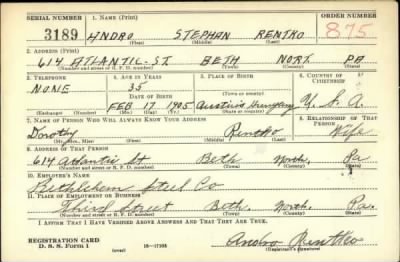 SERIAL NUMBER 1. NAME (Print) ORDER NUMBER
3189 ANDRO STEPHAN RENTKO 875
(First) (Middle) (Last)
2. ADDRESS (Print)
614 ATLANTIC-ST BETH NORT. PA
(Number and street or R. F. D. number) (Town) (County) (State)
3. TELEPHONE 4. AGE IN YEARS 5. PLACE OF BIRTH 6. COUNTRY OF CITIZENSHIP
NONE 35
DATE OF BIRTH (Town or county)
FEB 17 1905 Austria Hungary U. S. A.
(Exchange) (Number) (Mo.) (Day) (Yr.) (State or country)
7. NAME OF PERSON WHO WILL ALWAYS KNOW YOUR ADDRESS 8. RELATIONSHIP OF THAT PERSON
Dorothy Rentko Wife
(Mr., Mrs., Miss) (First) (Middle) (Last)
9. ADDRESS OF THAT PERSON
614 Atlantic St Beth North. Pa
(Number and street or R. F. D. number) (Town) (County) (State)
10. EMPLOYER'S NAME
Bethlehem Steel Co
11. PLACE OF EMPLOYMENT OR BUSINESS
Third Street Beth North. Pa.
(Number and street or R. F. D. number) (Town) (County) (State)
I AFFIRM THAT I HAVE VERIFIED ABOVE ANSWERS AND THAT THEY ARE TRUE.
REGISTRATION CARD
D. S. S. FORM 1 (over) Andro Rentko
(Registrant's signature)